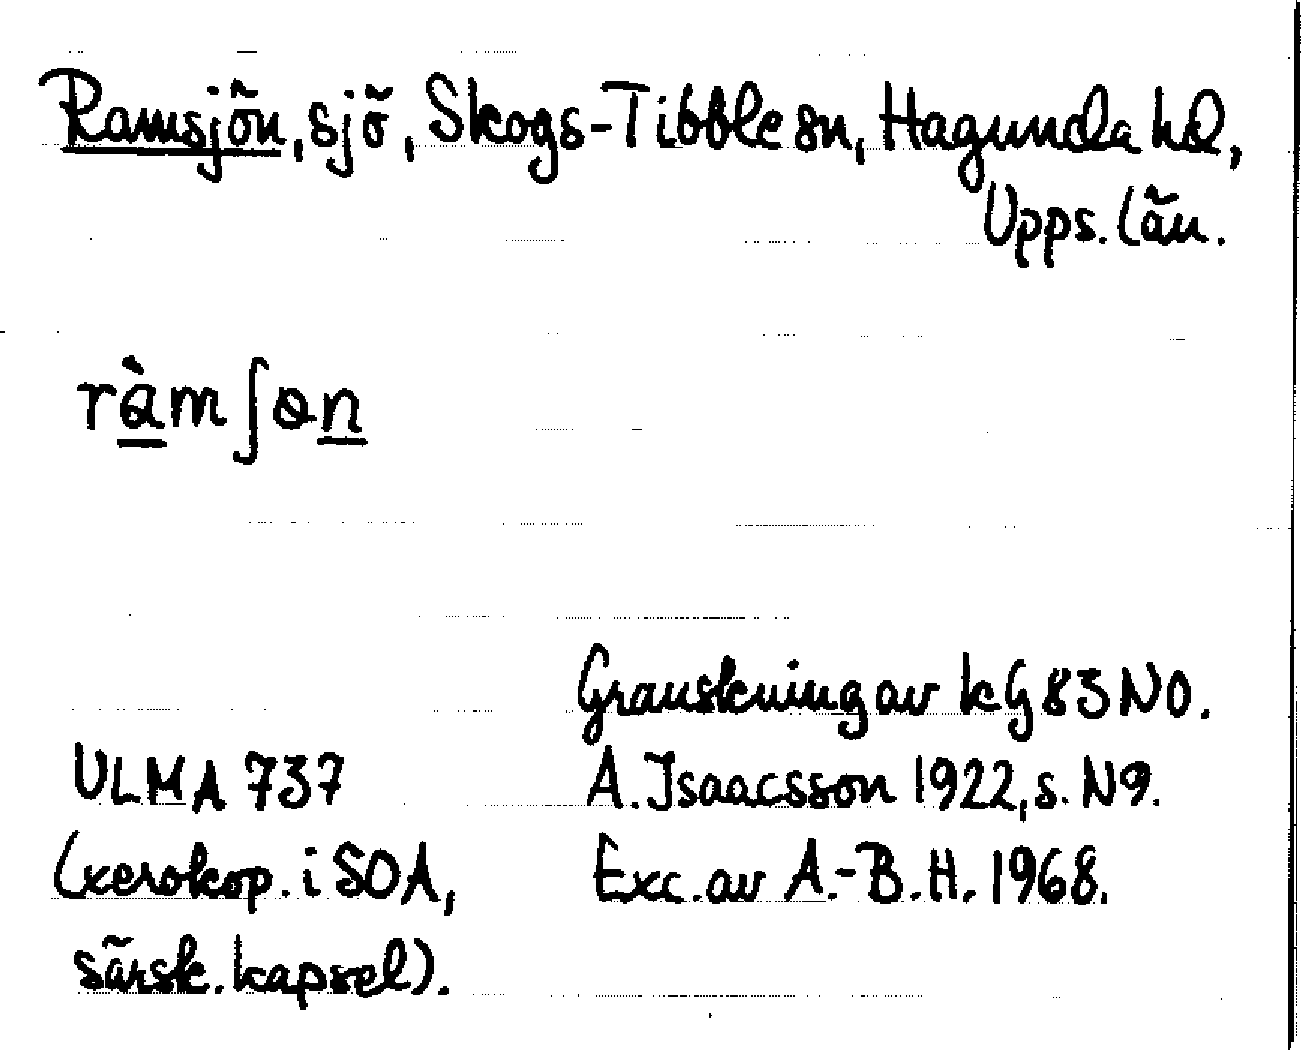 Ramsjön, sjö, Skogs-Tibble sn, Hagunda hd,
Upps. län.
ràmʃɵn
Granskning av kG 83 NO.
ULMA 737 A. Isaacsson 1922, s. N9.
(xerokop. i SOA, Exc. av A.-B. H. 1968.
särsk. kapsel).